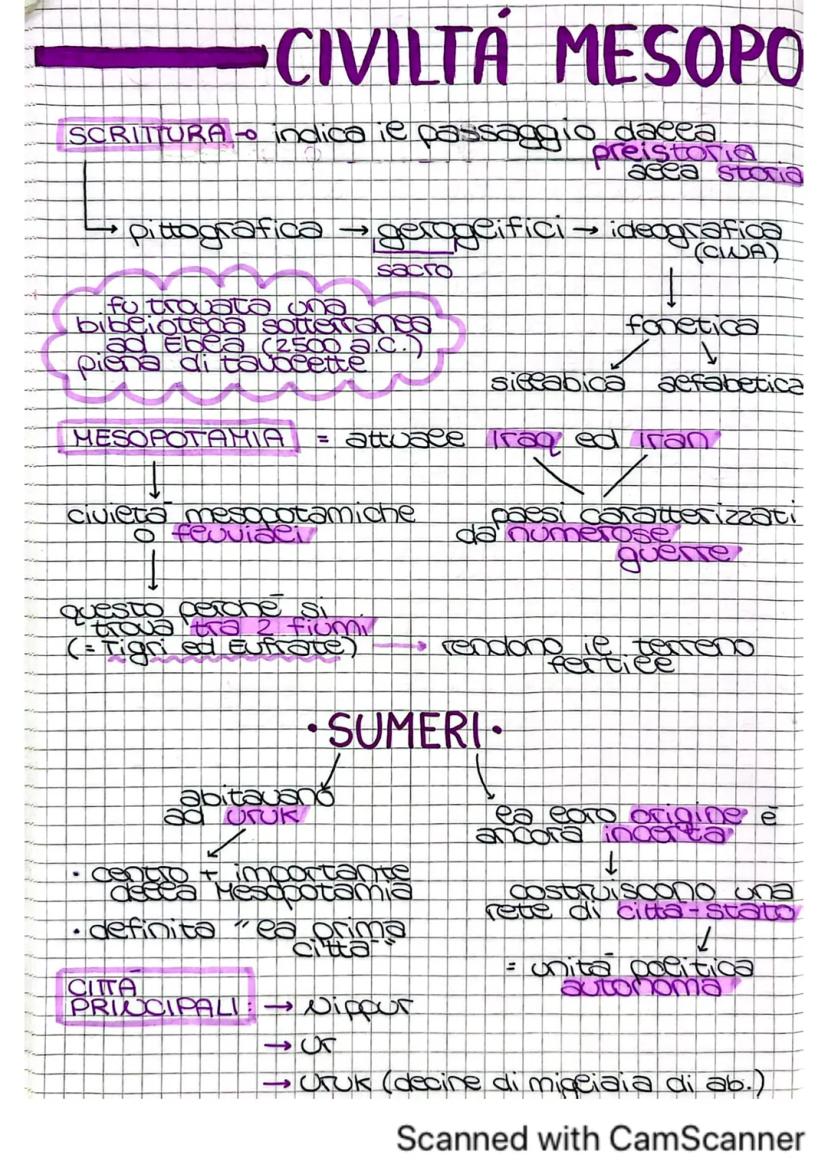 CIVILTÁ MESOPO
SCRITTURA → indica il passaggio dalla
preistoria
alla storia
pittografica → geroglifici → ideografica
sacro
(CINA)
fu trovata una
biblioteca sotterranea
ad Ebla (2500 a.C.)
piena di tavolette
fonetica
sillabica alfabetica
MESOPOTAMIA = attuale Iraq ed Iran
civiltá mesopotamiche
o fluviali
paesi caratterizzati
da numerose
guerre
questo perché si
trova tra 2 fiumi
(= Tigri ed Eufrate) → rendono il terreno
fertile
• SUMERI •
abitavano
ad Uruk
• centro + importante
della Mesopotamia
• definita "la prima
cittá"
la loro origine é
ancora incerta
costruiscono una
rete di cittá-stato
= unitá politica
autonoma
CITTÁ
PRINCIPALI: → Nippur
→ Ur
→ Uruk (decine di migliaia di ab.)
Scanned with CamScanner